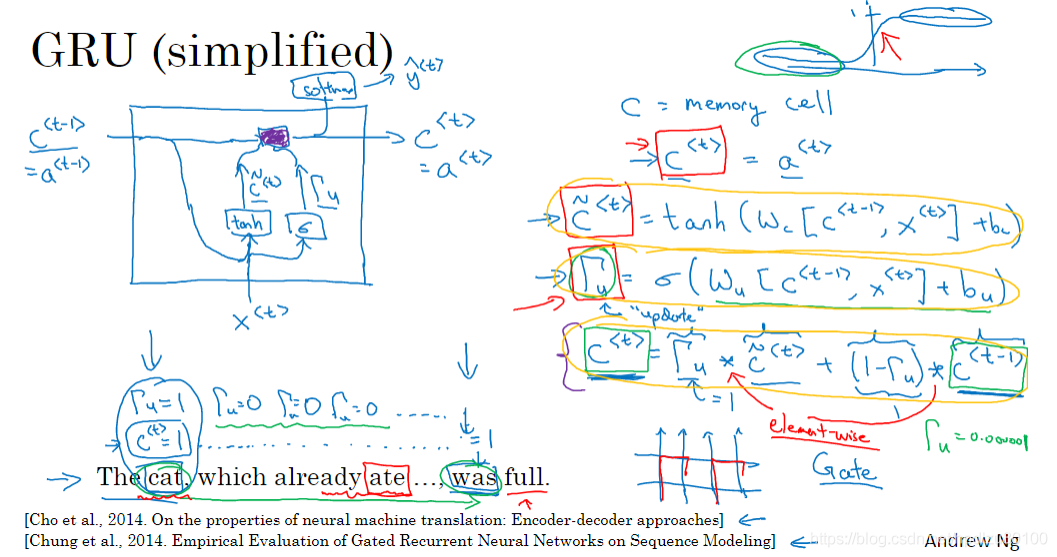 GRU (simplified)
softmax
ŷ^{<t>}
c^{<t-1>}
= a^{<t-1>}
c^{<t>}
= a^{<t>}
c̃^{<t>}
Γ_u
tanh
σ
x^{<t>}
1
C = memory cell
c^{<t>} = a^{<t>}
c̃^{<t>} = tanh(W_c[c^{<t-1>}, x^{<t>}] + b_c)
Γ_u = σ(W_u[c^{<t-1>}, x^{<t>}] + b_u)
"update"
c^{<t>} = Γ_u * c̃^{<t>} + (1-Γ_u) * c^{<t-1>}
= 1
element-wise
Γ_u = 0.000001
Gate
Γ_u=1 Γ_u=0 Γ_u=0 Γ_u=0 .....
c^{<t>}=1 ..........
=1
The cat, which already ate ..., was full.
[Cho et al., 2014. On the properties of neural machine translation: Encoder-decoder approaches]
[Chung et al., 2014. Empirical Evaluation of Gated Recurrent Neural Networks on Sequence Modeling]
Andrew Ng